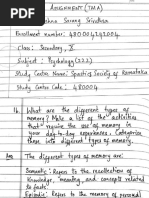 ASSIGNMENT (TMA)
Sarang Srinivasan
Enrollment number: 480004242004
Class: Secondary, X
Subject: Psychology (222)
Study Centre Name: Spastics Society of Karnataka
Study Centre Code: 480004
What are the different types of
memory? Make a list of the activities
that require the use of memory in
your day-to-day experiences. Categorise
them into different types of memory.
Ans The different types of memory are:
Semantic: Refers to the recollection of
knowledge, meaning, and concepts related
to facts.
Episodic: Refers to the memory of personal